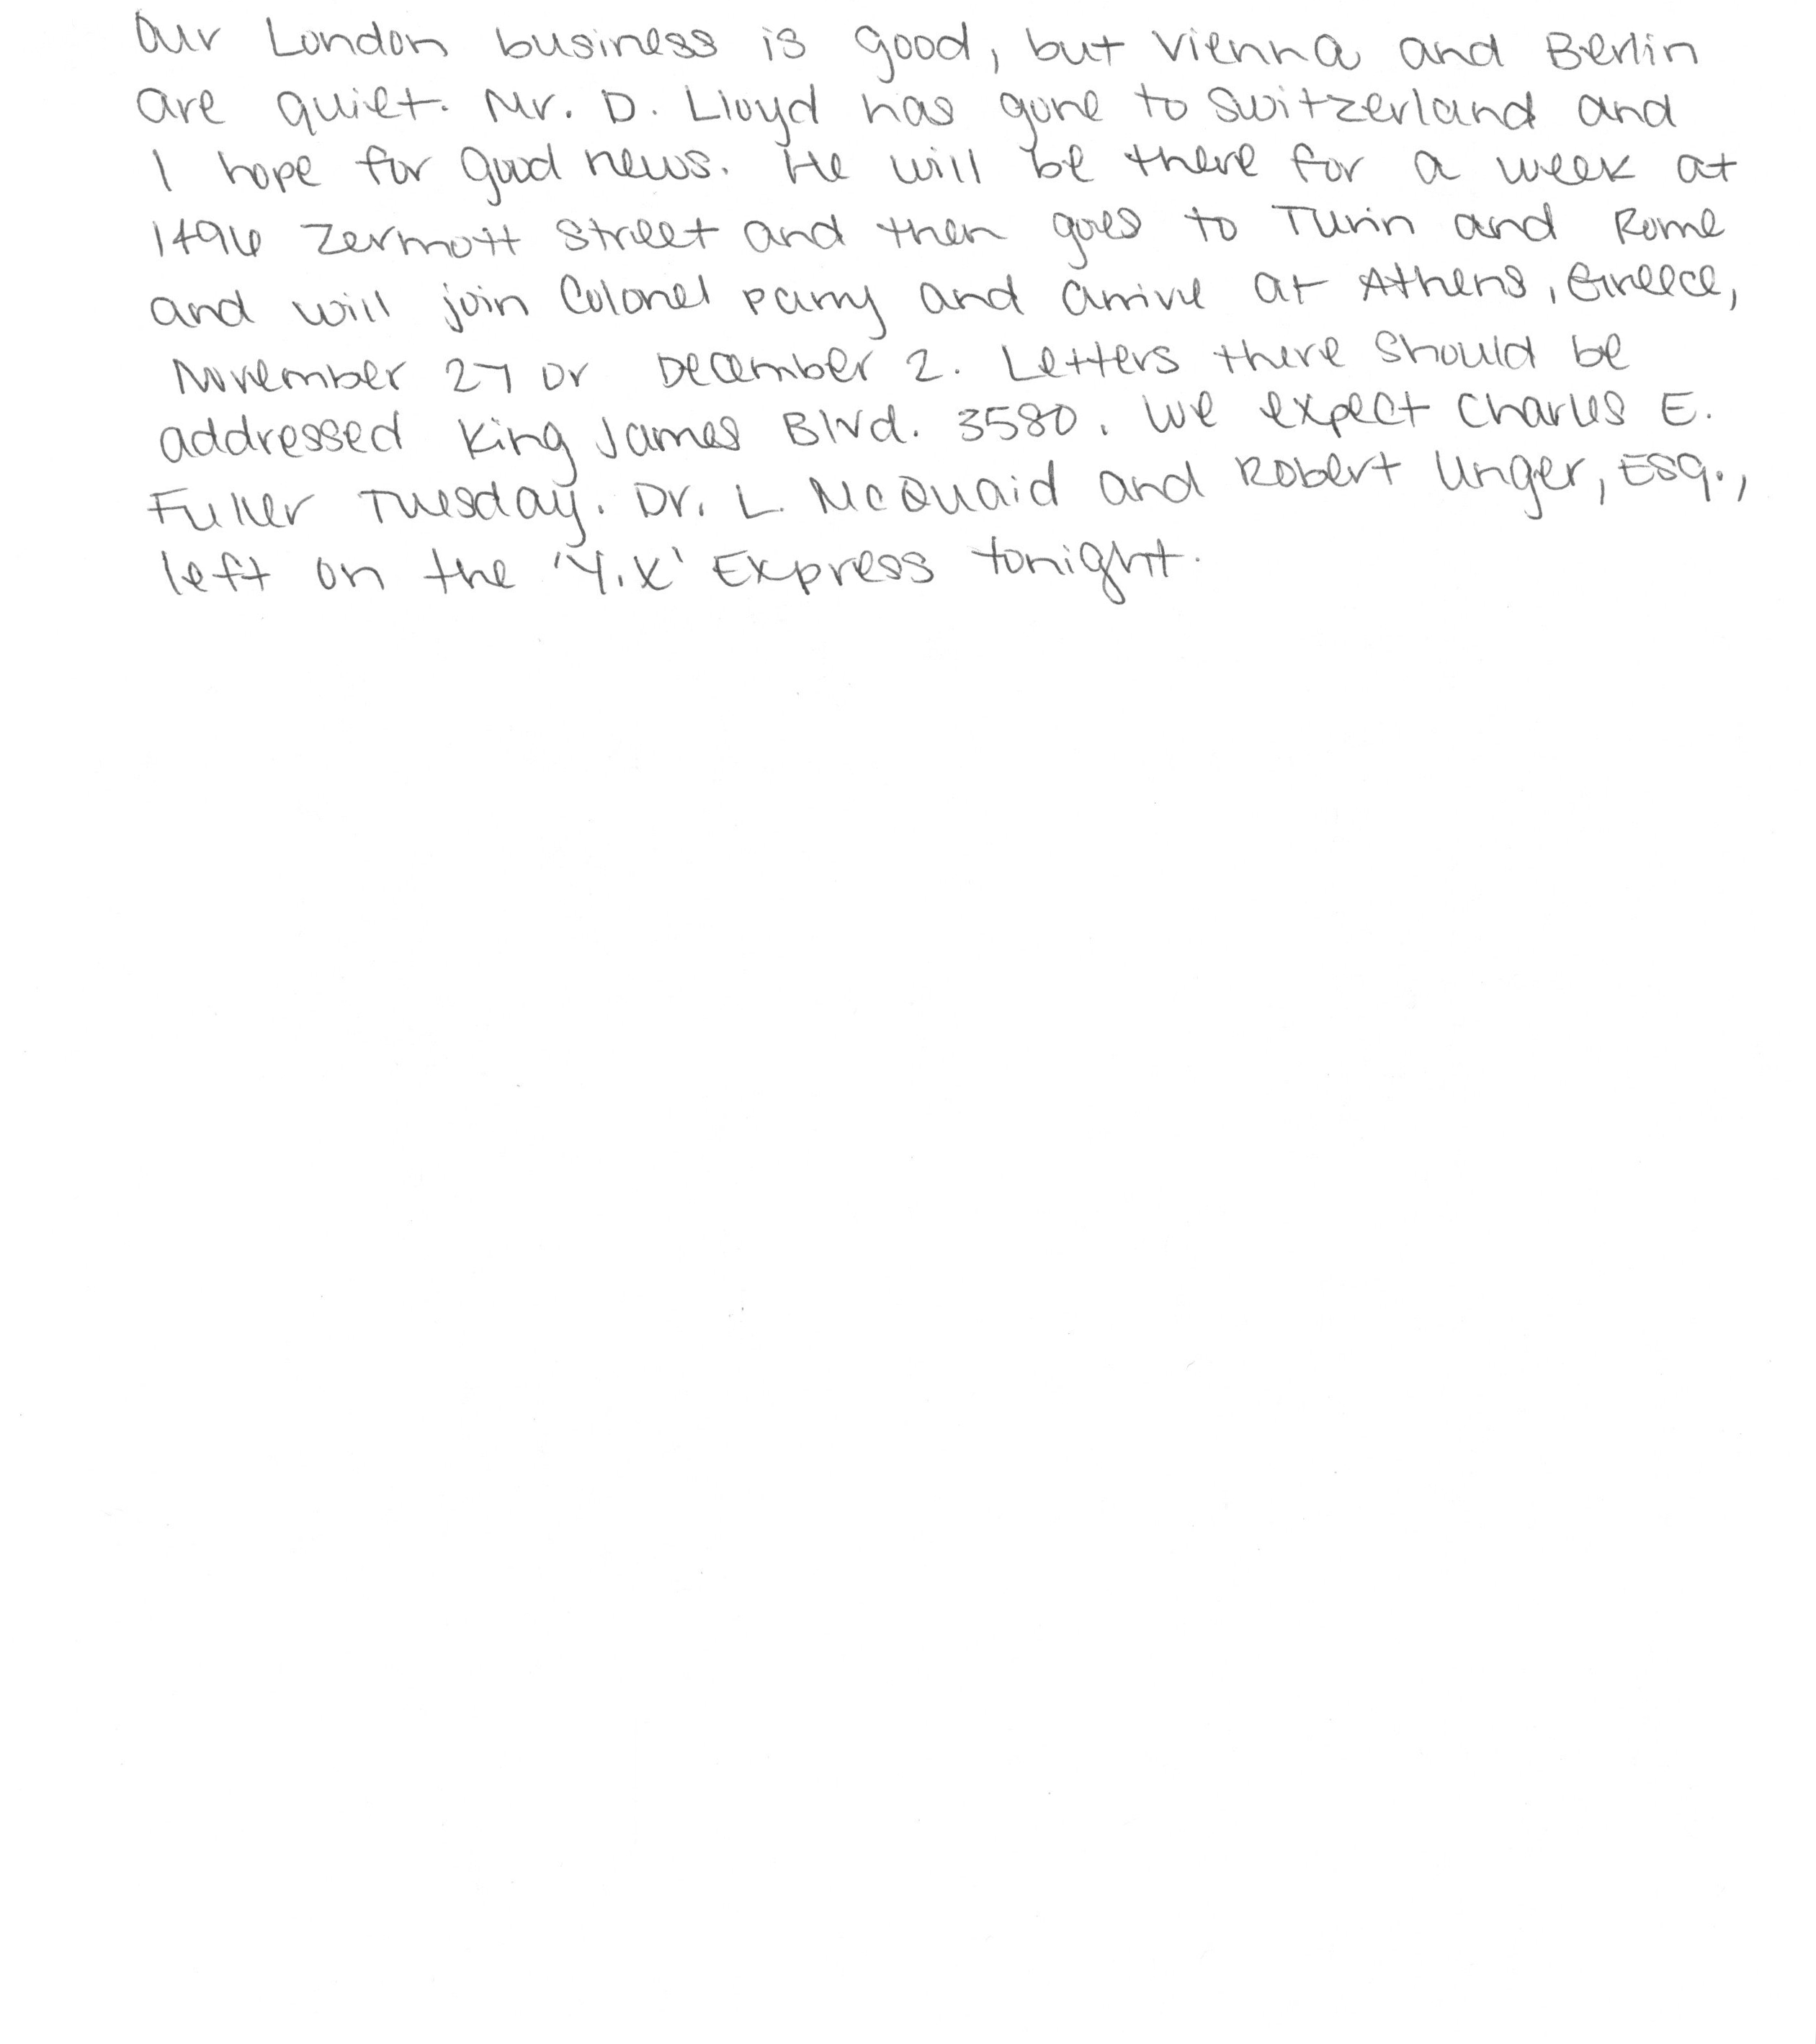 Our London business is good, but Vienna and Berlin
are quiet. Mr. D. Lloyd has gone to Switzerland and
I hope for good news. He will be there for a week at
1496 Zermott Street and then goes to Turin and Rome
and will join Colonel Parry and arrive at Athens, Greece,
November 27 or December 2. Letters there should be
addressed King James Blvd. 3580. We expect Charles E.
Fuller Tuesday. Dr. L. McQuaid and Robert Unger, Esq.,
left on the 'Y.X' Express tonight.